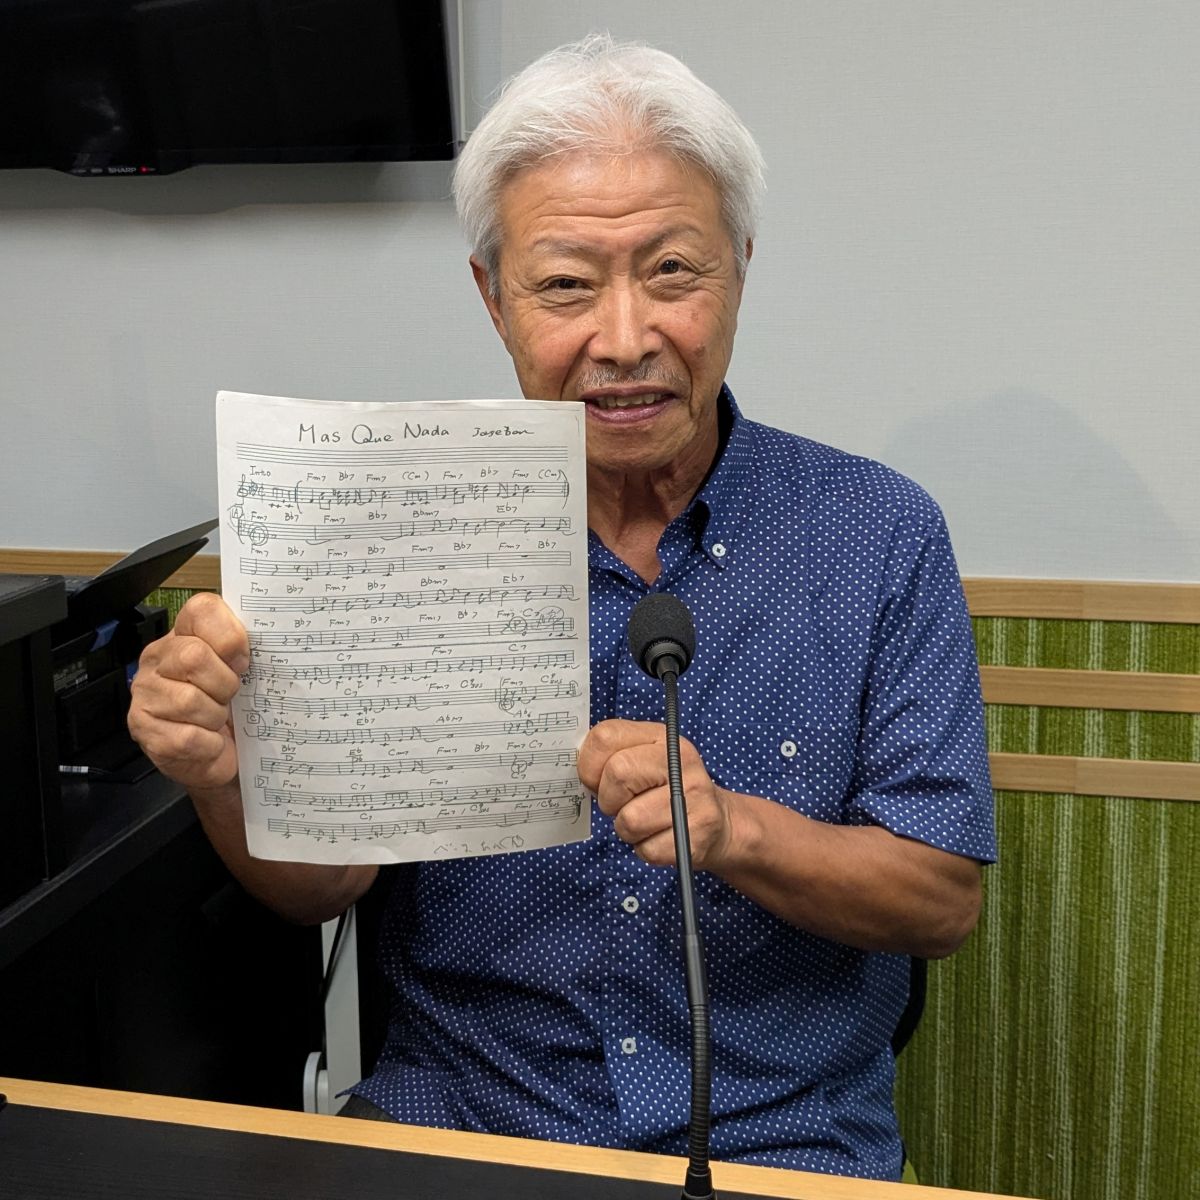 SHARP
Mas Que Nada
Intro
Fm7 Bb7 Fm7 (Cm) Fm7 Bb7 Fm7 (Cm)
A Fm7 Bb7 Fm7 Bb7 Bbm7 Eb7
Fm7 Bb7 Fm7 Bb7 Fm7 Bb7 Fm7 Bb7
Fm7 Bb7 Fm7 Bb7 Bbm7 Eb7
Fm7 Bb7 Fm7 Bb7 Fm7 Bb7 Fm7 C7
Fm7 C7 Fm7 C7
Fm7 C7 Fm7 Fm7
C Bbm7 Eb7 Abm7 Ab6
Cm7 Fm7 Bb7 Fm7 C7
D Fm7 C7 Fm7 C7
Fm7 C7